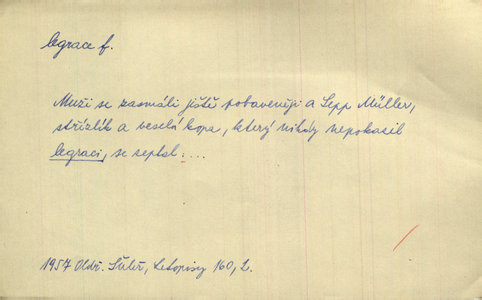 legrace f.
Muži se zasmáli ještě pobaveněji a Sepp Müller,
střízlík a veselá kopa, který nikdy nepokazil
legraci, se zeptal: ...
1957 Oldř. Šuleř, Letopisy 160, 2.